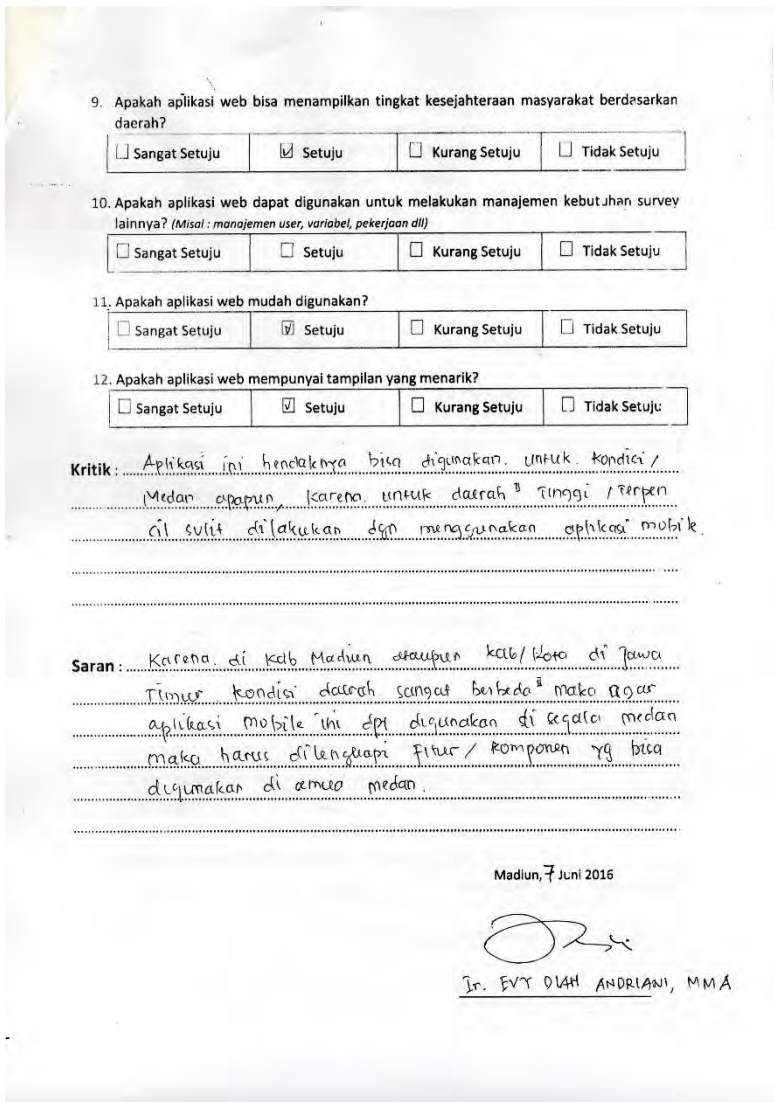 9. Apakah aplikasi web bisa menampilkan tingkat kesejahteraan masyarakat berdasarkan
daerah?
☐ Sangat Setuju ☑ Setuju ☐ Kurang Setuju ☐ Tidak Setuju
10. Apakah aplikasi web dapat digunakan untuk melakukan manajemen kebutuhan survey
lainnya? (Misal : manajemen user, variabel, pekerjaan dll)
☐ Sangat Setuju ☐ Setuju ☐ Kurang Setuju ☐ Tidak Setuju
11. Apakah aplikasi web mudah digunakan?
☐ Sangat Setuju ☑ Setuju ☐ Kurang Setuju ☐ Tidak Setuju
12. Apakah aplikasi web mempunyai tampilan yang menarik?
☐ Sangat Setuju ☑ Setuju ☐ Kurang Setuju ☐ Tidak Setuju
Kritik : Aplikasi ini hendaknya bisa digunakan. untuk. kondisi /
Medan apapun, karena. untuk daerah" Tinggi / Terpen
cil sulit dilakukan dgn menggunakan aplikasi mobile.
Saran : Karena. di kab Madiun ataupun kab/kota di Jawa
Timur kondisi daerah sangat berbeda" maka agar
aplikasi mobile ini dpt digunakan di segala medan
maka harus dilengkapi fitur / komponen yg bisa
digunakan di semua medan.
Madiun, 7 Juni 2016
Ir. EVY DIAH ANDRIANI, MMA